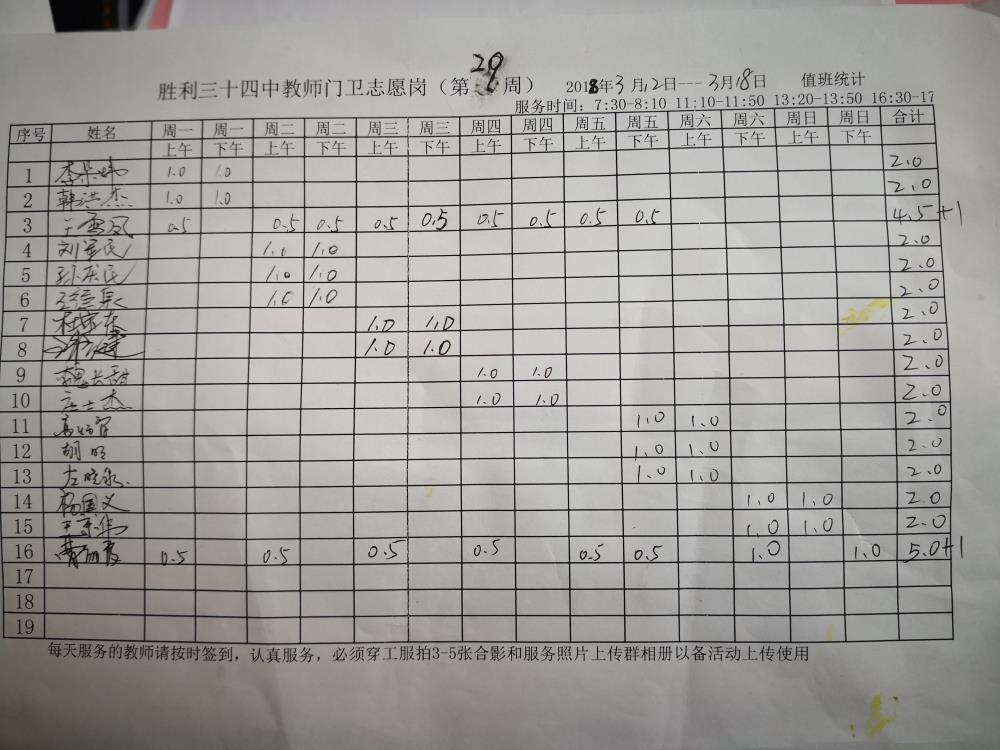 胜利三十四中教师门卫志愿岗（第29周） 2018年3月12日---3月18日 值班统计
服务时间：7:30-8:10 11:10-11:50 13:20-13:50 16:30-17
序号 姓名 周一 周一 周二 周二 周三 周三 周四 周四 周五 周五 周六 周六 周日 周日 合计
上午 下午 上午 下午 上午 下午 上午 下午 上午 下午 上午 下午 上午 下午
1 1.0 1.0 2.0
2 韩洪杰 1.0 1.0 2.0
3 于雪凤 0.5 0.5 0.5 0.5 0.5 0.5 0.5 0.5 0.5 4.5+1
4 刘军民 1.0 1.0 2.0
5 孙庆民 1.0 1.0 2.0
6 1.0 1.0 2.0
7 1.0 1.0 2.0
8 1.0 1.0 2.0
9 1.0 1.0 2.0
10 1.0 1.0 2.0
11 1.0 1.0 2.0
12 胡明 1.0 1.0 2.0
13 左晓泉 1.0 1.0 2.0
14 杨国义 1.0 1.0 2.0
15 1.0 1.0 2.0
16 0.5 0.5 0.5 0.5 0.5 0.5 1.0 1.0 5.0+1
17
18
19
每天服务的教师请按时签到，认真服务，必须穿工服拍3-5张合影和服务照片上传群相册以备活动上传使用